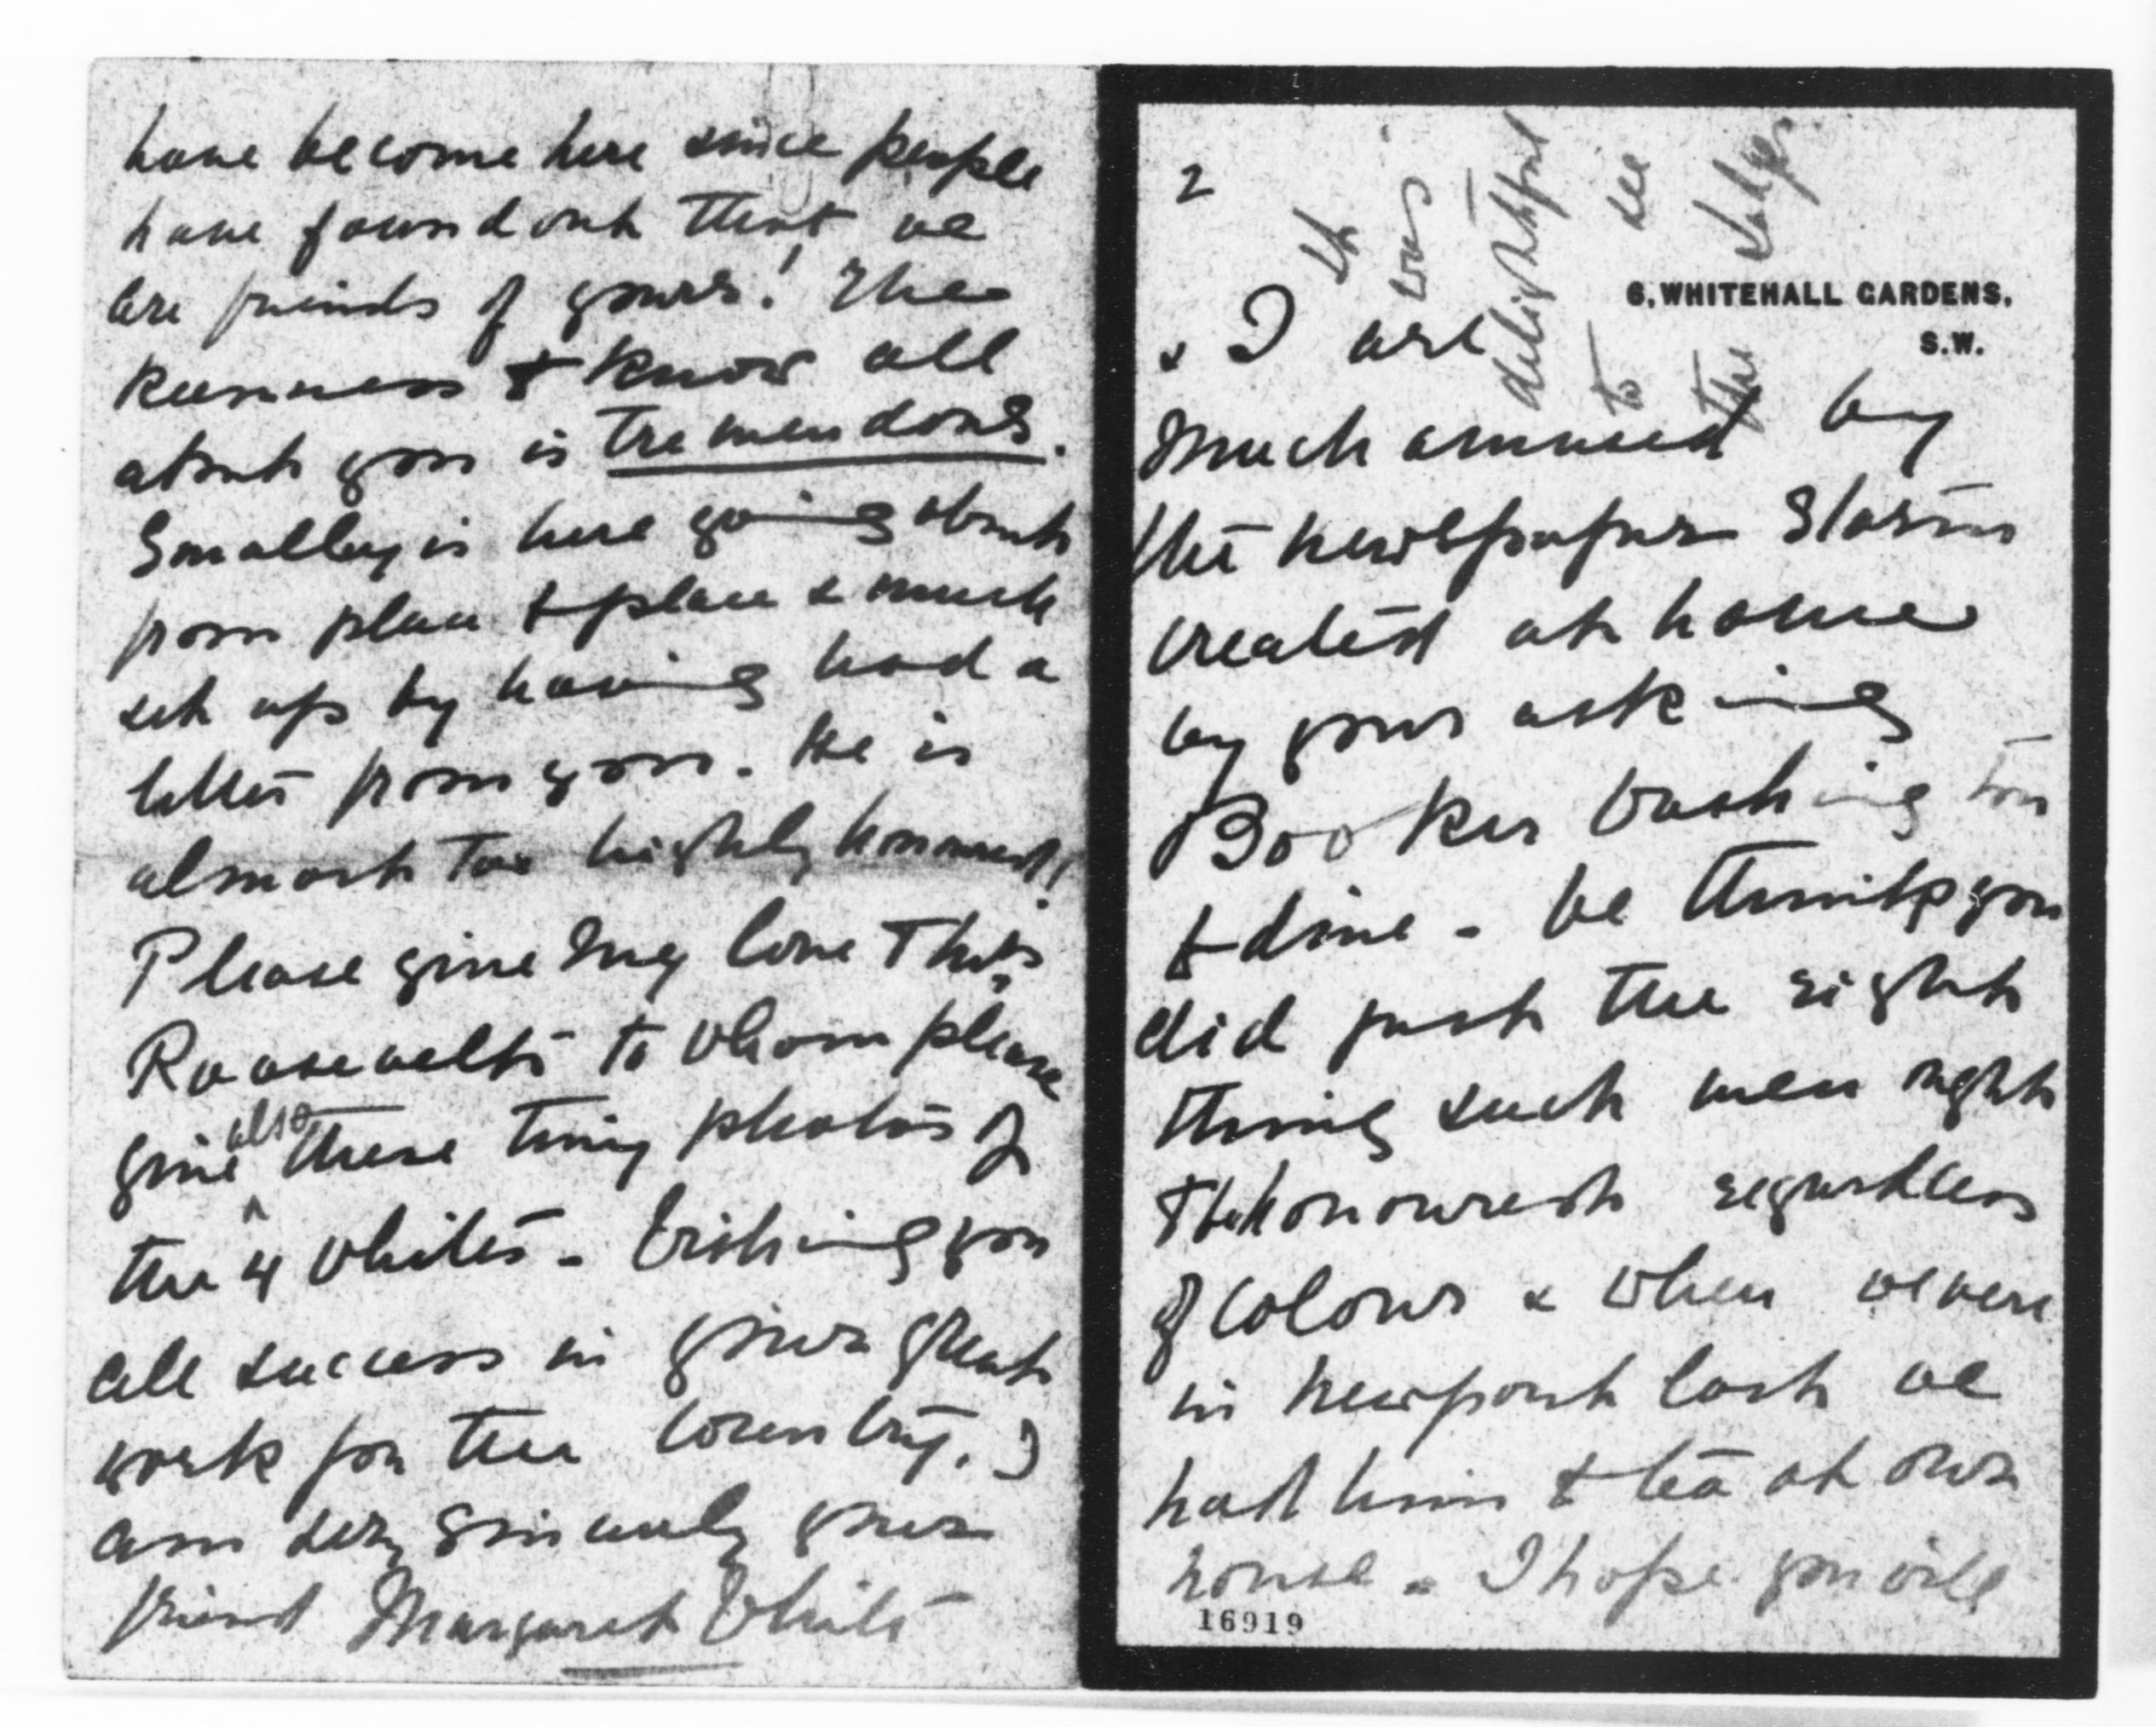 have become here since people
have found out that we
are friends of yours! The
keenness to know all
about you is tremendous.
Smalley is here going about
from place to place & much
set up by having had a
letter from you. He is
almost too highly honoured!
Please give my love to the
Roosevelts to whom please
give also these tiny photos of
the 4 Whites - Wishing you
all success in your great
work for the country. I
am very sincerely your
friend Margaret White
2
It was delightful to see the Lodges.
6, WHITEHALL GARDENS,
S.W.
& I are
much amused by
the newspaper storm
created at home
by your asking
Booker Washington
to dine - We think you
did just the right
thing such men ought
to be honoured regardless
of colour & when we were
in Newport last we
had him to tea at our
house - I hope you will
16919